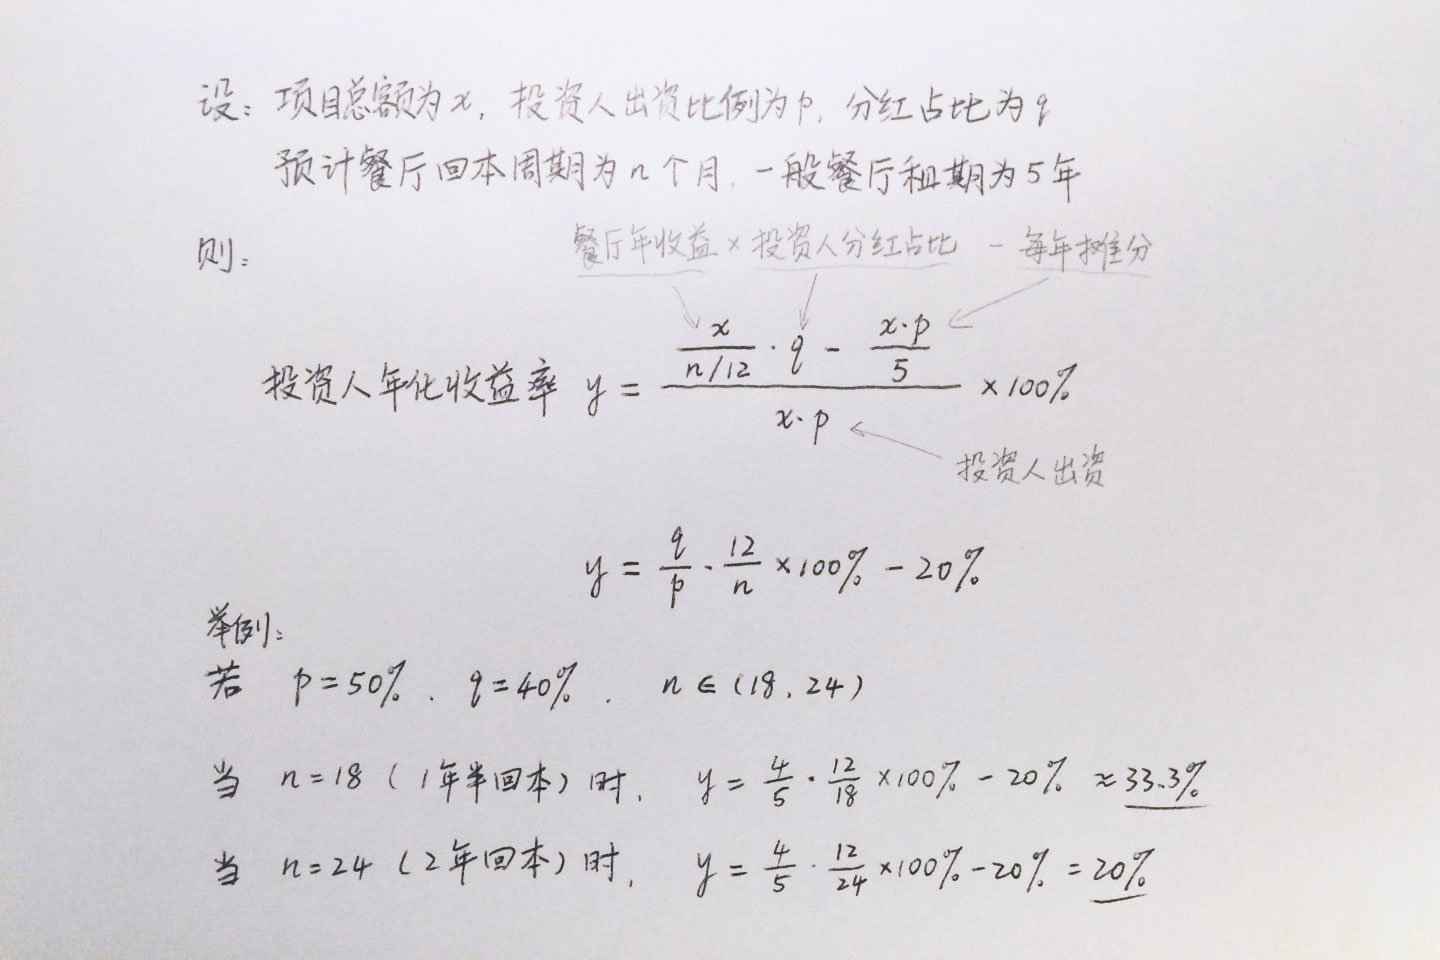 设：项目总额为x，投资人出资比例为p，分红占比为q
预计餐厅回本周期为n个月，一般餐厅租期为5年
则：
餐厅年收益 × 投资人分红占比 - 每年摊分
投资人年化收益率 y = (x/(n/12) · q - x·p/5) / (x·p) × 100%
投资人出资
y = q/p · 12/n × 100% - 20%
举例：
若 p=50%、q=40%、n∈(18, 24)
当 n=18（1年半回本）时，y = 4/5 · 12/18 × 100% - 20% ≈ 33.3%
当 n=24（2年回本）时，y = 4/5 · 12/24 × 100% - 20% = 20%